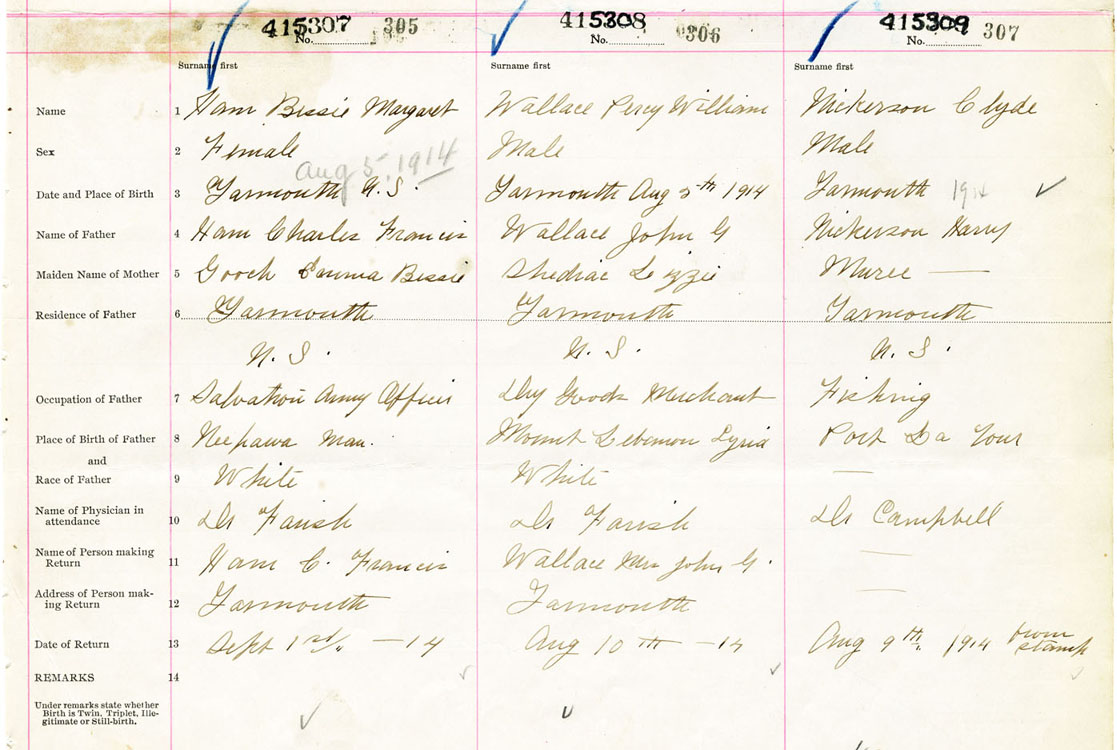 415307 305 415308 306 415309 307
No. No. No.
Surname first Surname first Surname first
Name 1 Ham Bessie Margaret Wallace Percy William Nickerson Clyde
Sex 2 Female Male Male
Aug 5, 1914
Date and Place of Birth 3 Yarmouth N.S. Yarmouth Aug 5th 1914 Yarmouth 1914
Name of Father 4 Ham Charles Francis Wallace John G Nickerson Harry
Maiden Name of Mother 5 Gooch Emma Bessie Shediac Lizzie Muree —
Residence of Father 6 Yarmouth Yarmouth Yarmouth
N. S. N. S. N. S.
Occupation of Father 7 Salvation Army Officer Dry Goods Merchant Fishing
Place of Birth of Father 8 Neepawa Man. Mount Lebenon Syria Port La Tour
and
Race of Father 9 White White —
Name of Physician in
attendance 10 Dr Farish Dr Farish Dr Campbell
Name of Person making
Return 11 Ham C. Francis Wallace Mrs John G. —
Address of Person mak-
ing Return 12 Yarmouth Yarmouth —
Date of Return 13 Sept 1st — 14 Aug 10th — 14 Aug 9th, 1914 from stamp
REMARKS 14
Under remarks state whether
Birth is Twin, Triplet, Ille-
gitimate or Still-birth.